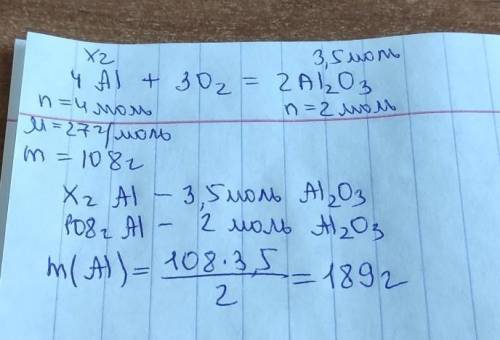 хг 3,5 моль
4Al + 3O₂ = 2Al₂O₃
n = 4 моль n = 2 моль
M = 27 г/моль
m = 108 г
Xг Al – 3,5 моль Al₂O₃
108г Al – 2 моль Al₂O₃
m(Al) = 108·3,5 / 2 = 189 г